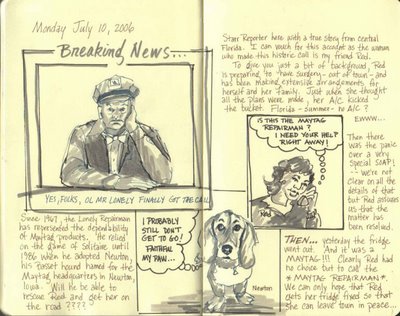 Monday July 10, 2006
Breaking News...
YES, FOLKS, OL MR LONELY FINALLY GOT THE CALL
Since 1967, the Lonely Repairman
has represented the dependability
of Maytag products. He relied
on the game of Solitaire until
1986 when he adopted Newton,
his Basset hound named for the
Maytag headquarters in Newton,
Iowa. Will he be able to
rescue Red and get her on the
road ????
I PROBABLY
STILL DON'T
GET TO GO!
FAITHFUL
MY PAW...
Newton
Starr Reporter here with a true story from central
Florida. I can vouch for this account as the woman
who made this historic call is my friend Red.
To give you just a bit of background, Red
is preparing to have surgery - out of town - and
has been making extensive arrangements for
herself and her family. Just when she thought
all the plans were made, her A/C kicked
the bucket. Florida - summer - no A/C ?
EWWW...
IS THIS THE MAYTAG
REPAIRMAN ?
I NEED YOUR HELP
RIGHT AWAY!
Red
Then there
was the panic
over a very
Special SOAP!
-- we're not
clear on all the
details of that
but Red assures
us that the
matter has
been resolved.
THEN... yesterday the fridge
went out. And it was a
MAYTAG!!! Clearly Red had
no choice but to call the
* MAYTAG REPAIRMAN *.
We can only hope that Red
gets her fridge fixed so that
she can leave town in peace...